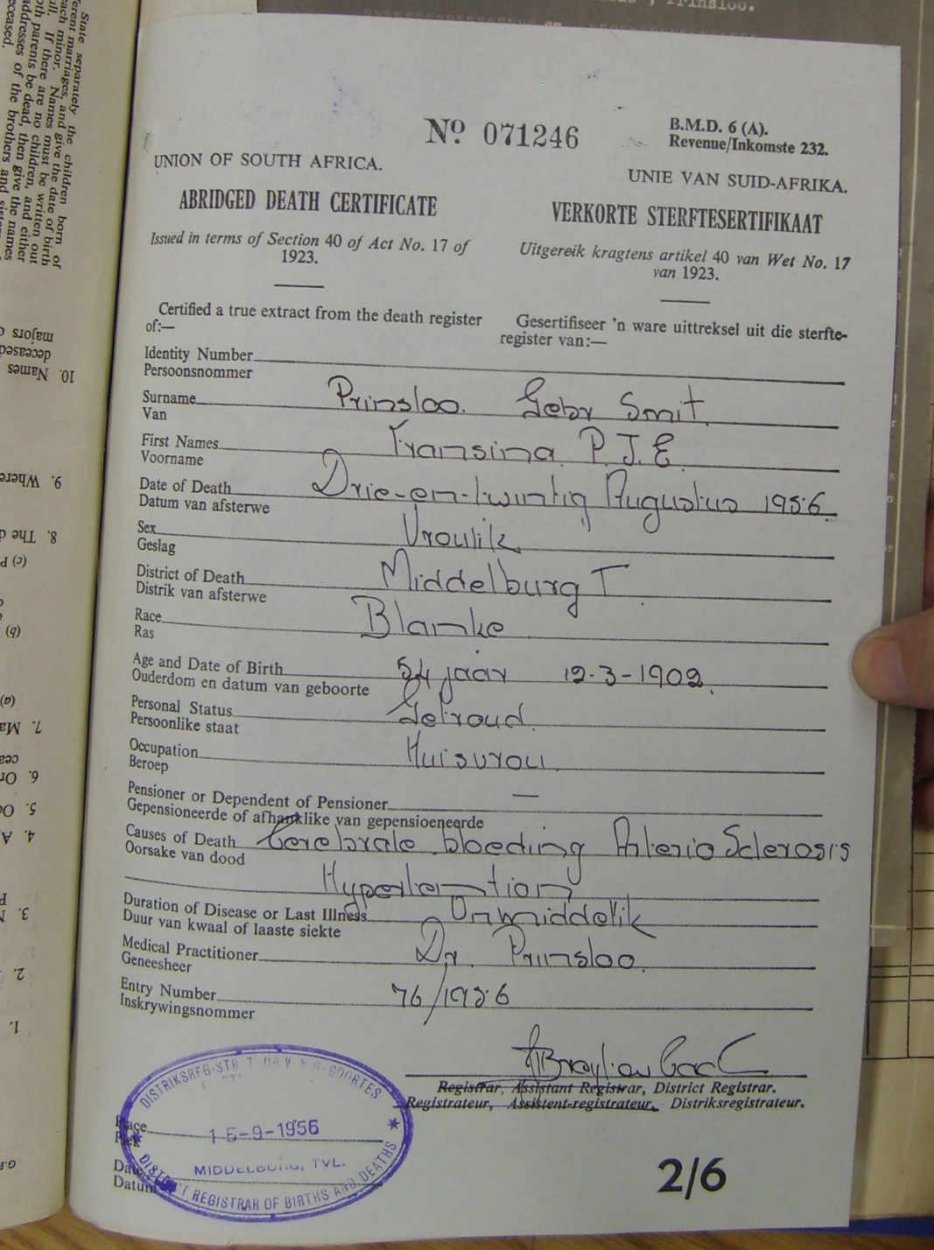 State separately the children born of
erent marriages, and give the date of birth
ach minor. Names must be written out
ull. If there are no children, and either
oth parents be dead, then give the names
addresses of the brothers and
deceased.
majors
deceased
10. Names
9. Where
8. The d
(c)
(b)
(a)
7. Ma
6. Or
5. Oc
4. A
3.
2.
1.
Prinsloo.
Nº 071246
B.M.D. 6 (A).
Revenue/Inkomste 232.
UNION OF SOUTH AFRICA.
UNIE VAN SUID-AFRIKA.
ABRIDGED DEATH CERTIFICATE
VERKORTE STERFTESERTIFIKAAT
Issued in terms of Section 40 of Act No. 17 of
1923.
Uitgereik kragtens artikel 40 van Wet No. 17
van 1923.
Certified a true extract from the death register
of:—
Gesertifiseer 'n ware uittreksel uit die sterfte-
register van:—
Identity Number
Persoonsnommer
Surname Prinsloo. Gebr Smit
Van
First Names Fransina P.J.E.
Voorname
Date of Death Drie-en-twintig Augustus 1956
Datum van afsterwe
Sex Vroulik
Geslag
District of Death Middelburg T
Distrik van afsterwe
Race Blanke
Ras
Age and Date of Birth 54 jaar 12-3-1902
Ouderdom en datum van geboorte
Personal Status Getroud
Persoonlike staat
Occupation Huisvrou
Beroep
Pensioner or Dependent of Pensioner —
Gepensioneerde of afhanklike van gepensioeneerde
Causes of Death Cerebrale bloeding Arterio Sclerosis
Oorsake van dood
Hypertention
Duration of Disease or Last Illness Onmiddelik
Duur van kwaal of laaste siekte
Medical Practitioner Dr. Prinsloo.
Geneesheer
Entry Number 76/1956
Inskrywingsnommer
Registrar, Assistant Registrar, District Registrar.
Registrateur, Assistent-registrateur, Distriksregistrateur.
Place
Plek
Date
Datum
15-9-1956
MIDDELBURG, TVL.
DISTRICT REGISTRAR OF BIRTHS AND DEATHS
2/6